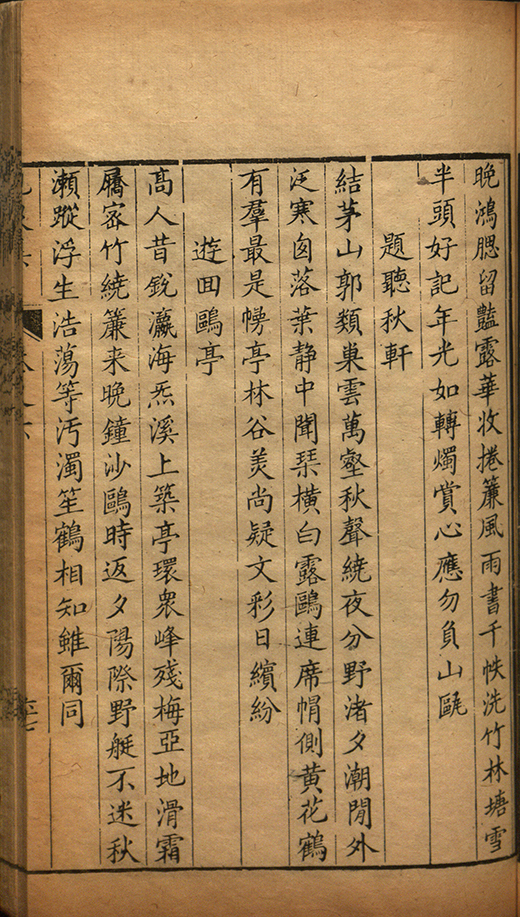 晚鴻腮留豔露華收捲簾風雨書千帙洗竹林塘雪
半頭好記年光如轉燭賞心應勿負山甌
題聽秋軒
結茅山郭類巢雲萬壑秋聲繞夜分野渚夕潮閒外
泛寒囪落葉静中聞琹橫白露鷗連席帽側黄花鶴
有羣最是㡡亭林谷羙尚疑文彩日繽紛
遊回鷗亭
髙人昔銳瀛海炁溪上築亭環衆峰殘梅亞地滑霜
屩宻竹繞簾来晚鐘沙鷗時返夕陽際野艇不迷秋
瀨蹤浮生浩蕩等汚濁笙鶴相知雖爾同